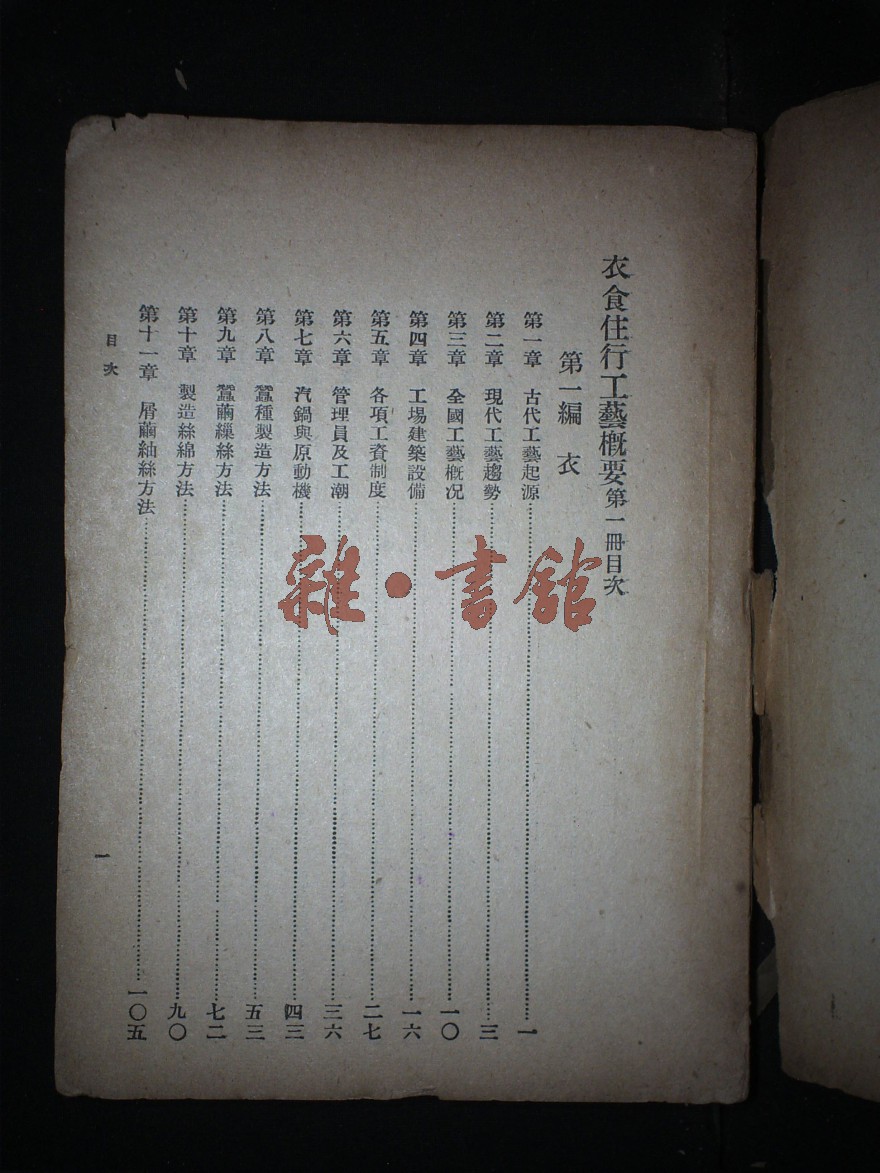 衣食住行工藝概要第一冊目次
第一編 衣
第一章 古代工藝起源……一
第二章 現代工藝趨勢……三
第三章 全國工藝概況……一〇
第四章 工場建築設備……一六
第五章 各項工資制度……二七
第六章 管理員及工潮……三六
第七章 汽鍋與原動機……四三
第八章 蠶種製造方法……五三
第九章 蠶繭繅絲方法……七二
第十章 製造絲綿方法……九〇
第十一章 屑繭紬絲方法……一〇五
目次
一
雜·書館